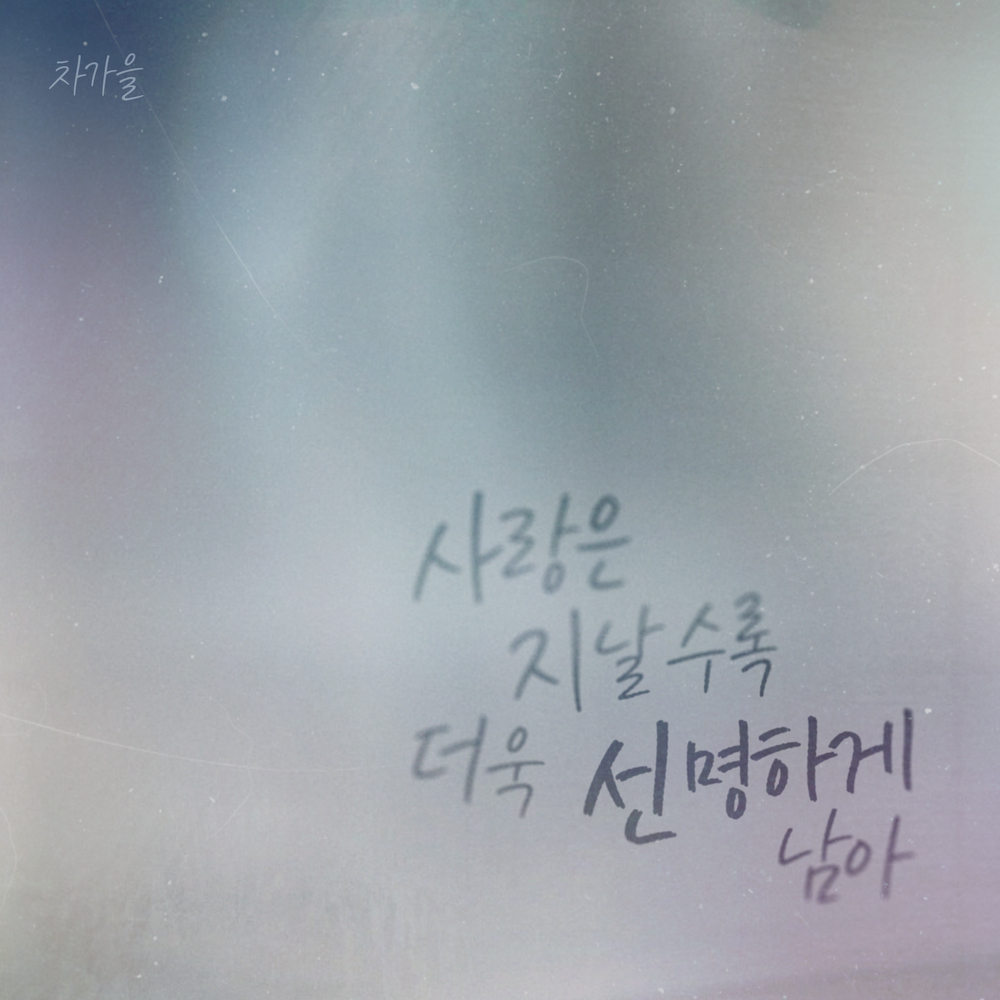 차가을
사랑은
지날수록
더욱 선명하게
남아